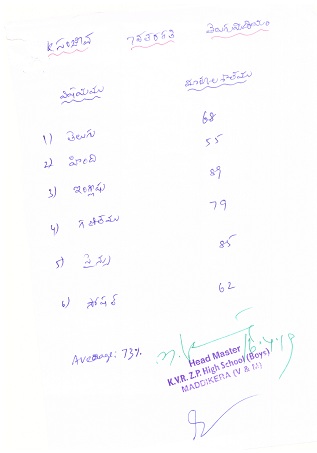 K సంజీవ 7వతరగతి తెలుగుమీడియం
విషయము మార్కుల శాతము
1) తెలుగు 68
2) హింది 55
3) ఇంగ్లీషు 89
4) గణితము 79
5) సైన్సు 85
6) సోషల్ 62
Average: 73%.
16.4.19
Head Master
K.V.R. Z.P. High School (Boys)
MADDIKERA (V & M)